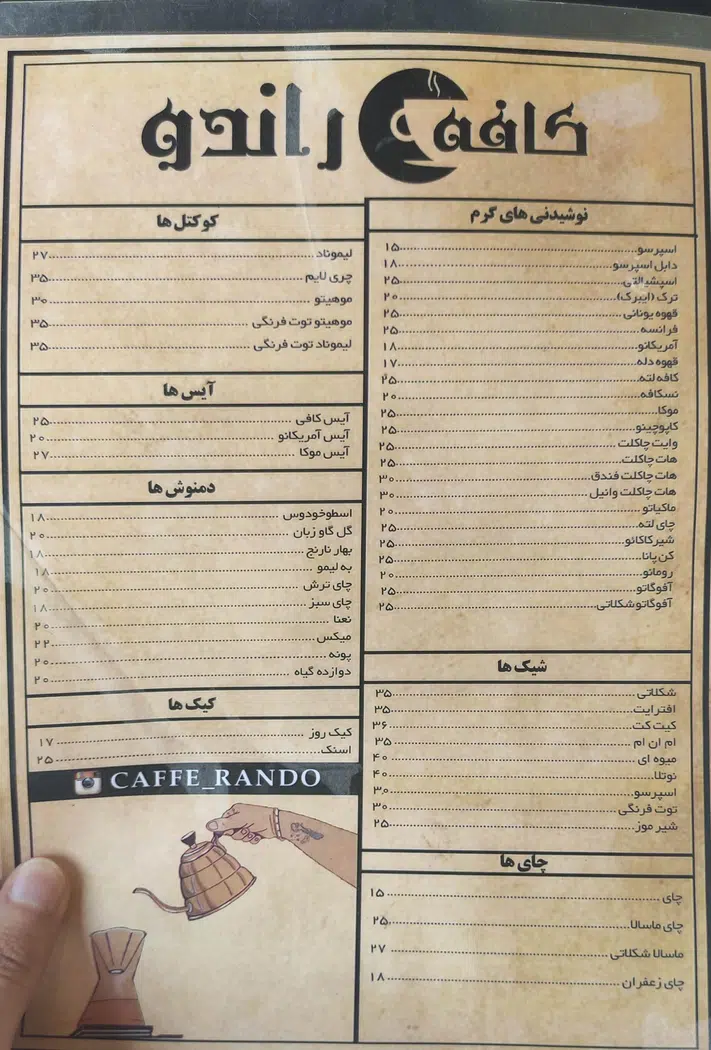 کافه راندو
نوشیدنی های گرم
اسپرسو ۱۵
دابل اسپرسو ۱۸
اسپشیالتی ۲۵
ترک (ایبرک) ۲۰
قهوه یونانی ۲۵
فرانسه ۲۵
آمریکانو ۱۸
قهوه دله ۱۷
کافه لته ۲۵
نسکافه ۲۰
موکا ۲۵
کاپوچینو ۲۵
وایت چاکلت ۲۵
هات چاکلت ۲۵
هات چاکلت فندق ۳۰
هات چاکلت وانیل ۳۰
ماکیاتو ۲۰
چای لته ۲۵
شیرکاکائو ۲۵
کن پانا ۲۵
رومانو ۲۰
آفوگاتو ۲۵
آفوگاتو شکلاتی ۲۵
شیک ها
شکلاتی ۳۵
افترایت ۳۵
کیت کت ۳۶
ام ان ام ۳۵
میوه ای ۴۰
نوتلا ۴۰
اسپرسو ۳۰
توت فرنگی ۳۰
شیر موز ۲۵
چای ها
چای ۱۵
چای ماسالا ۲۵
ماسالا شکلاتی ۲۷
چای زعفران ۱۸
کوکتل ها
لیموناد ۲۷
چری لایم ۳۵
موهیتو ۳۰
موهیتو توت فرنگی ۳۵
لیموناد توت فرنگی ۳۵
آیس ها
آیس کافی ۲۵
آیس آمریکانو ۲۰
آیس موکا ۲۷
دمنوش ها
اسطوخودوس ۱۸
گل گاو زبان ۲۰
بهار نارنج ۱۸
به لیمو ۱۸
چای ترش ۲۰
چای سبز ۱۸
نعنا ۲۰
میکس ۲۲
پونه ۲۰
دوازده گیاه ۲۰
کیک ها
کیک روز ۱۷
اسنک ۲۵
CAFFE_RANDO